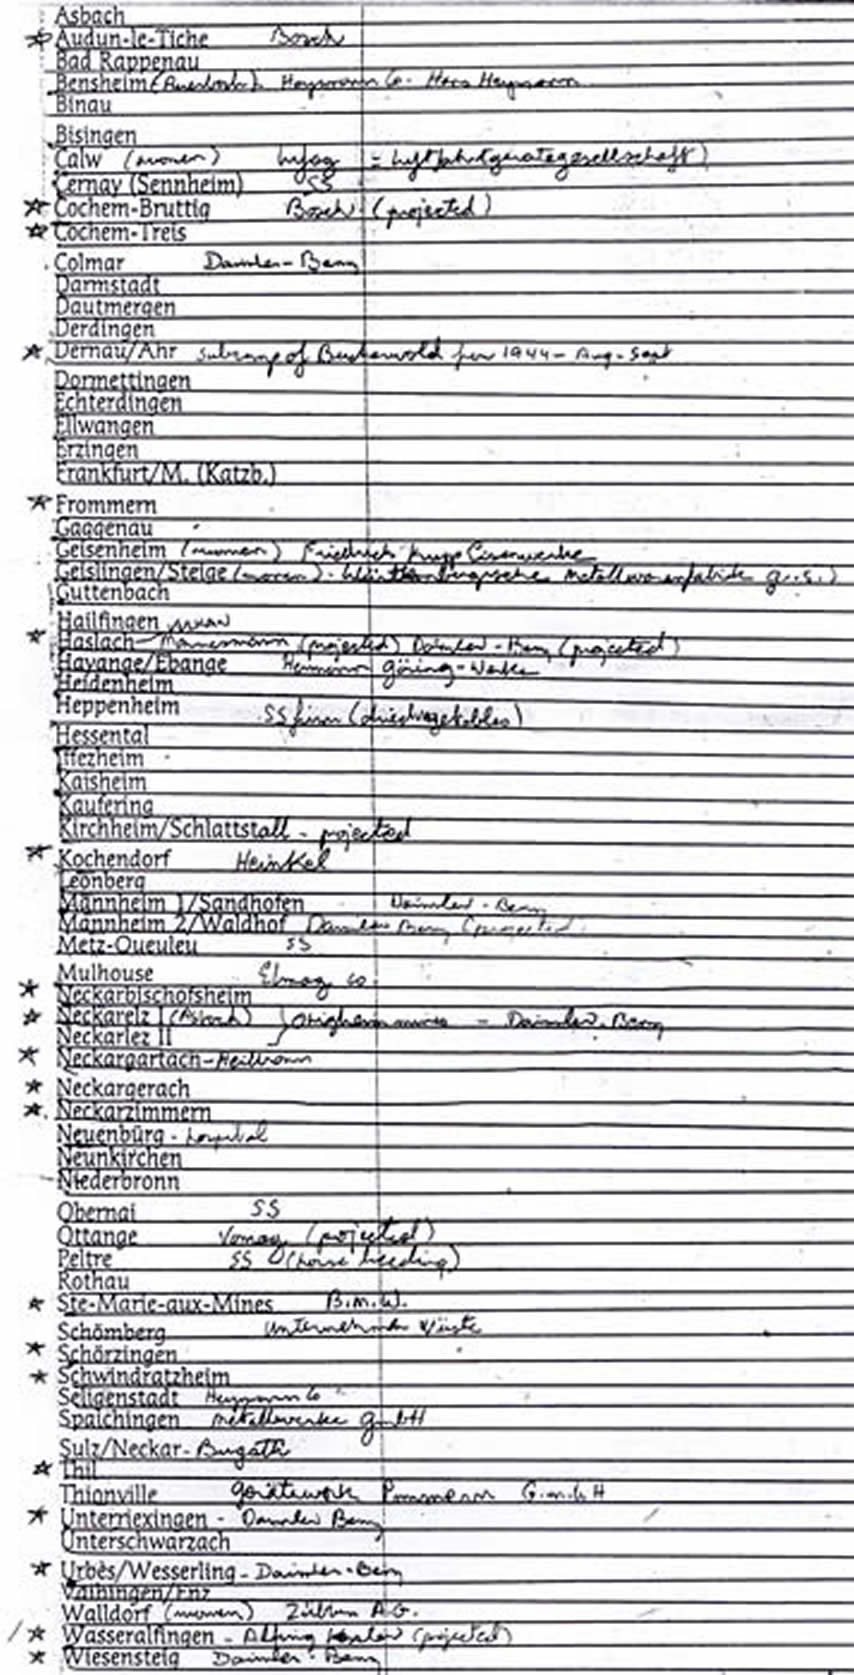 Asbach
Audun-le-Tiche Bosch
Bad Rappenau
Bensheim (Auerbach). Heymann Co. Hans Heymann
Binau
Bisingen
Calw (women) Lufag = Luftfahrtgerätegesellschaft)
Cernay (Sennheim) SS
Cochem-Bruttig Bosch (projected)
Cochem-Treis
Colmar Daimler-Benz
Darmstadt
Dautmergen
Derdingen
Dernau/Ahr subcamp of Buchenwald for 1944- Aug-Sept
Dormettingen
Echterdingen
Ellwangen
Erzingen
Frankfurt/M. (Katzb.)
Frommern
Gaggenau
Geisenheim (women) Friedrich Krupp
Geislingen/Steige (women). Württembergische Metallwarenfabrik
Guttenbach
Hailfingen
Haslach- Mannesmann (projected) Daimler-Benz (projected)
Hayange/Ebange Hermann Göring-Werke
Heidenheim
Heppenheim SS firm (dried vegetables)
Hessental
Iffezheim
Kaisheim
Kaufering
Kirchheim/Schlattstall - projected
Kochendorf Heinkel
Leonberg
Mannheim 1/Sandhofen Daimler-Benz
Mannheim 2/Waldhof Daimler Benz (projected)
Metz-Queuleu SS
Mulhouse Elmag co.
Neckarbischofsheim
Neckarelz I (Asbach) } Obrigheim mines - Daimler-Benz
Neckarlez II
Neckargartach-Heilbronn
Neckargerach
Neckarzimmern
Neuenbürg - hospital
Neunkirchen
Niederbronn
Obernai SS
Ottange Vomag (projected)
Peltre SS (horse breeding)
Rothau
Ste-Marie-aux-Mines B.M.W.
Schömberg Unternehmen Wüste
Schörzingen
Schwindratzheim
Seligenstadt Heymann Co
Spaichingen Metallwerke GmbH
Sulz/Neckar- Bugatti
Thil
Thionville Gerätewerk Pommern G.m.b.H
Unterriexingen - Daimler Benz
Unterschwarzach
Urbès/Wesserling - Daimler-Benz
Vaihingen/Enz
Walldorf (women) Züblin A.G.
Wasseralfingen - Alfing Kessler (projected)
Wiesensteig Daimler-Benz